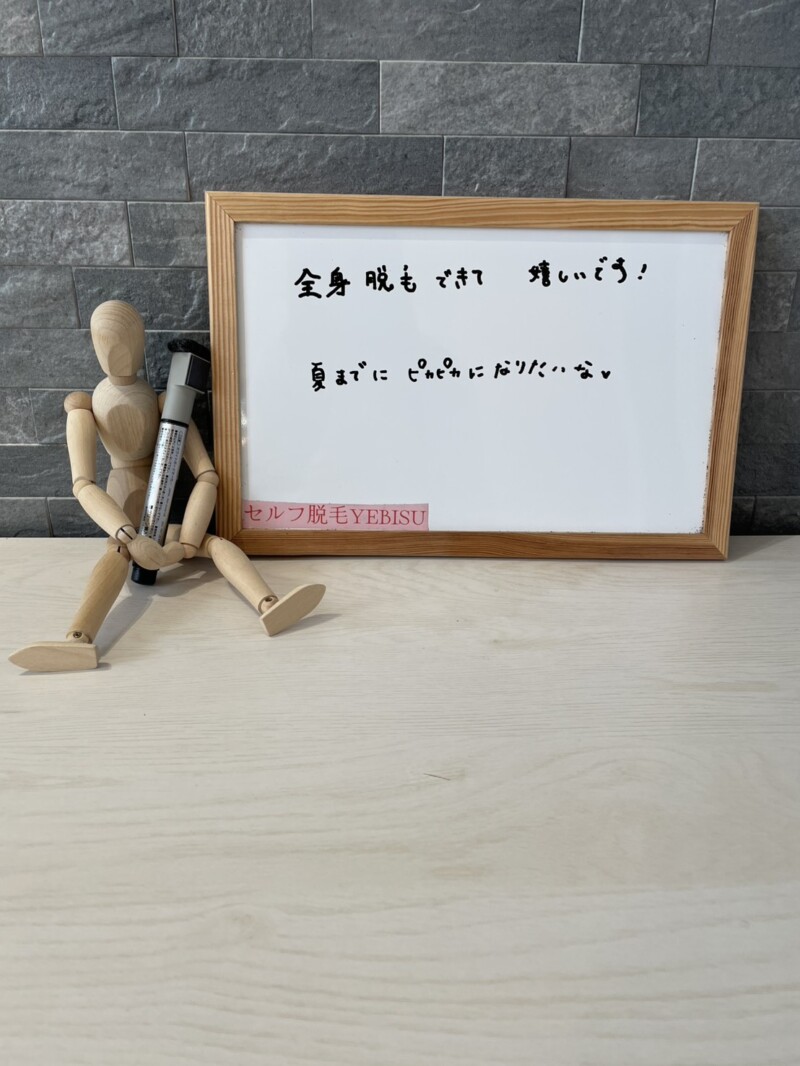 全身脱毛できて 嬉しいです!
夏までに ピカピカになりたいな♥
セルフ脱毛YEBISU